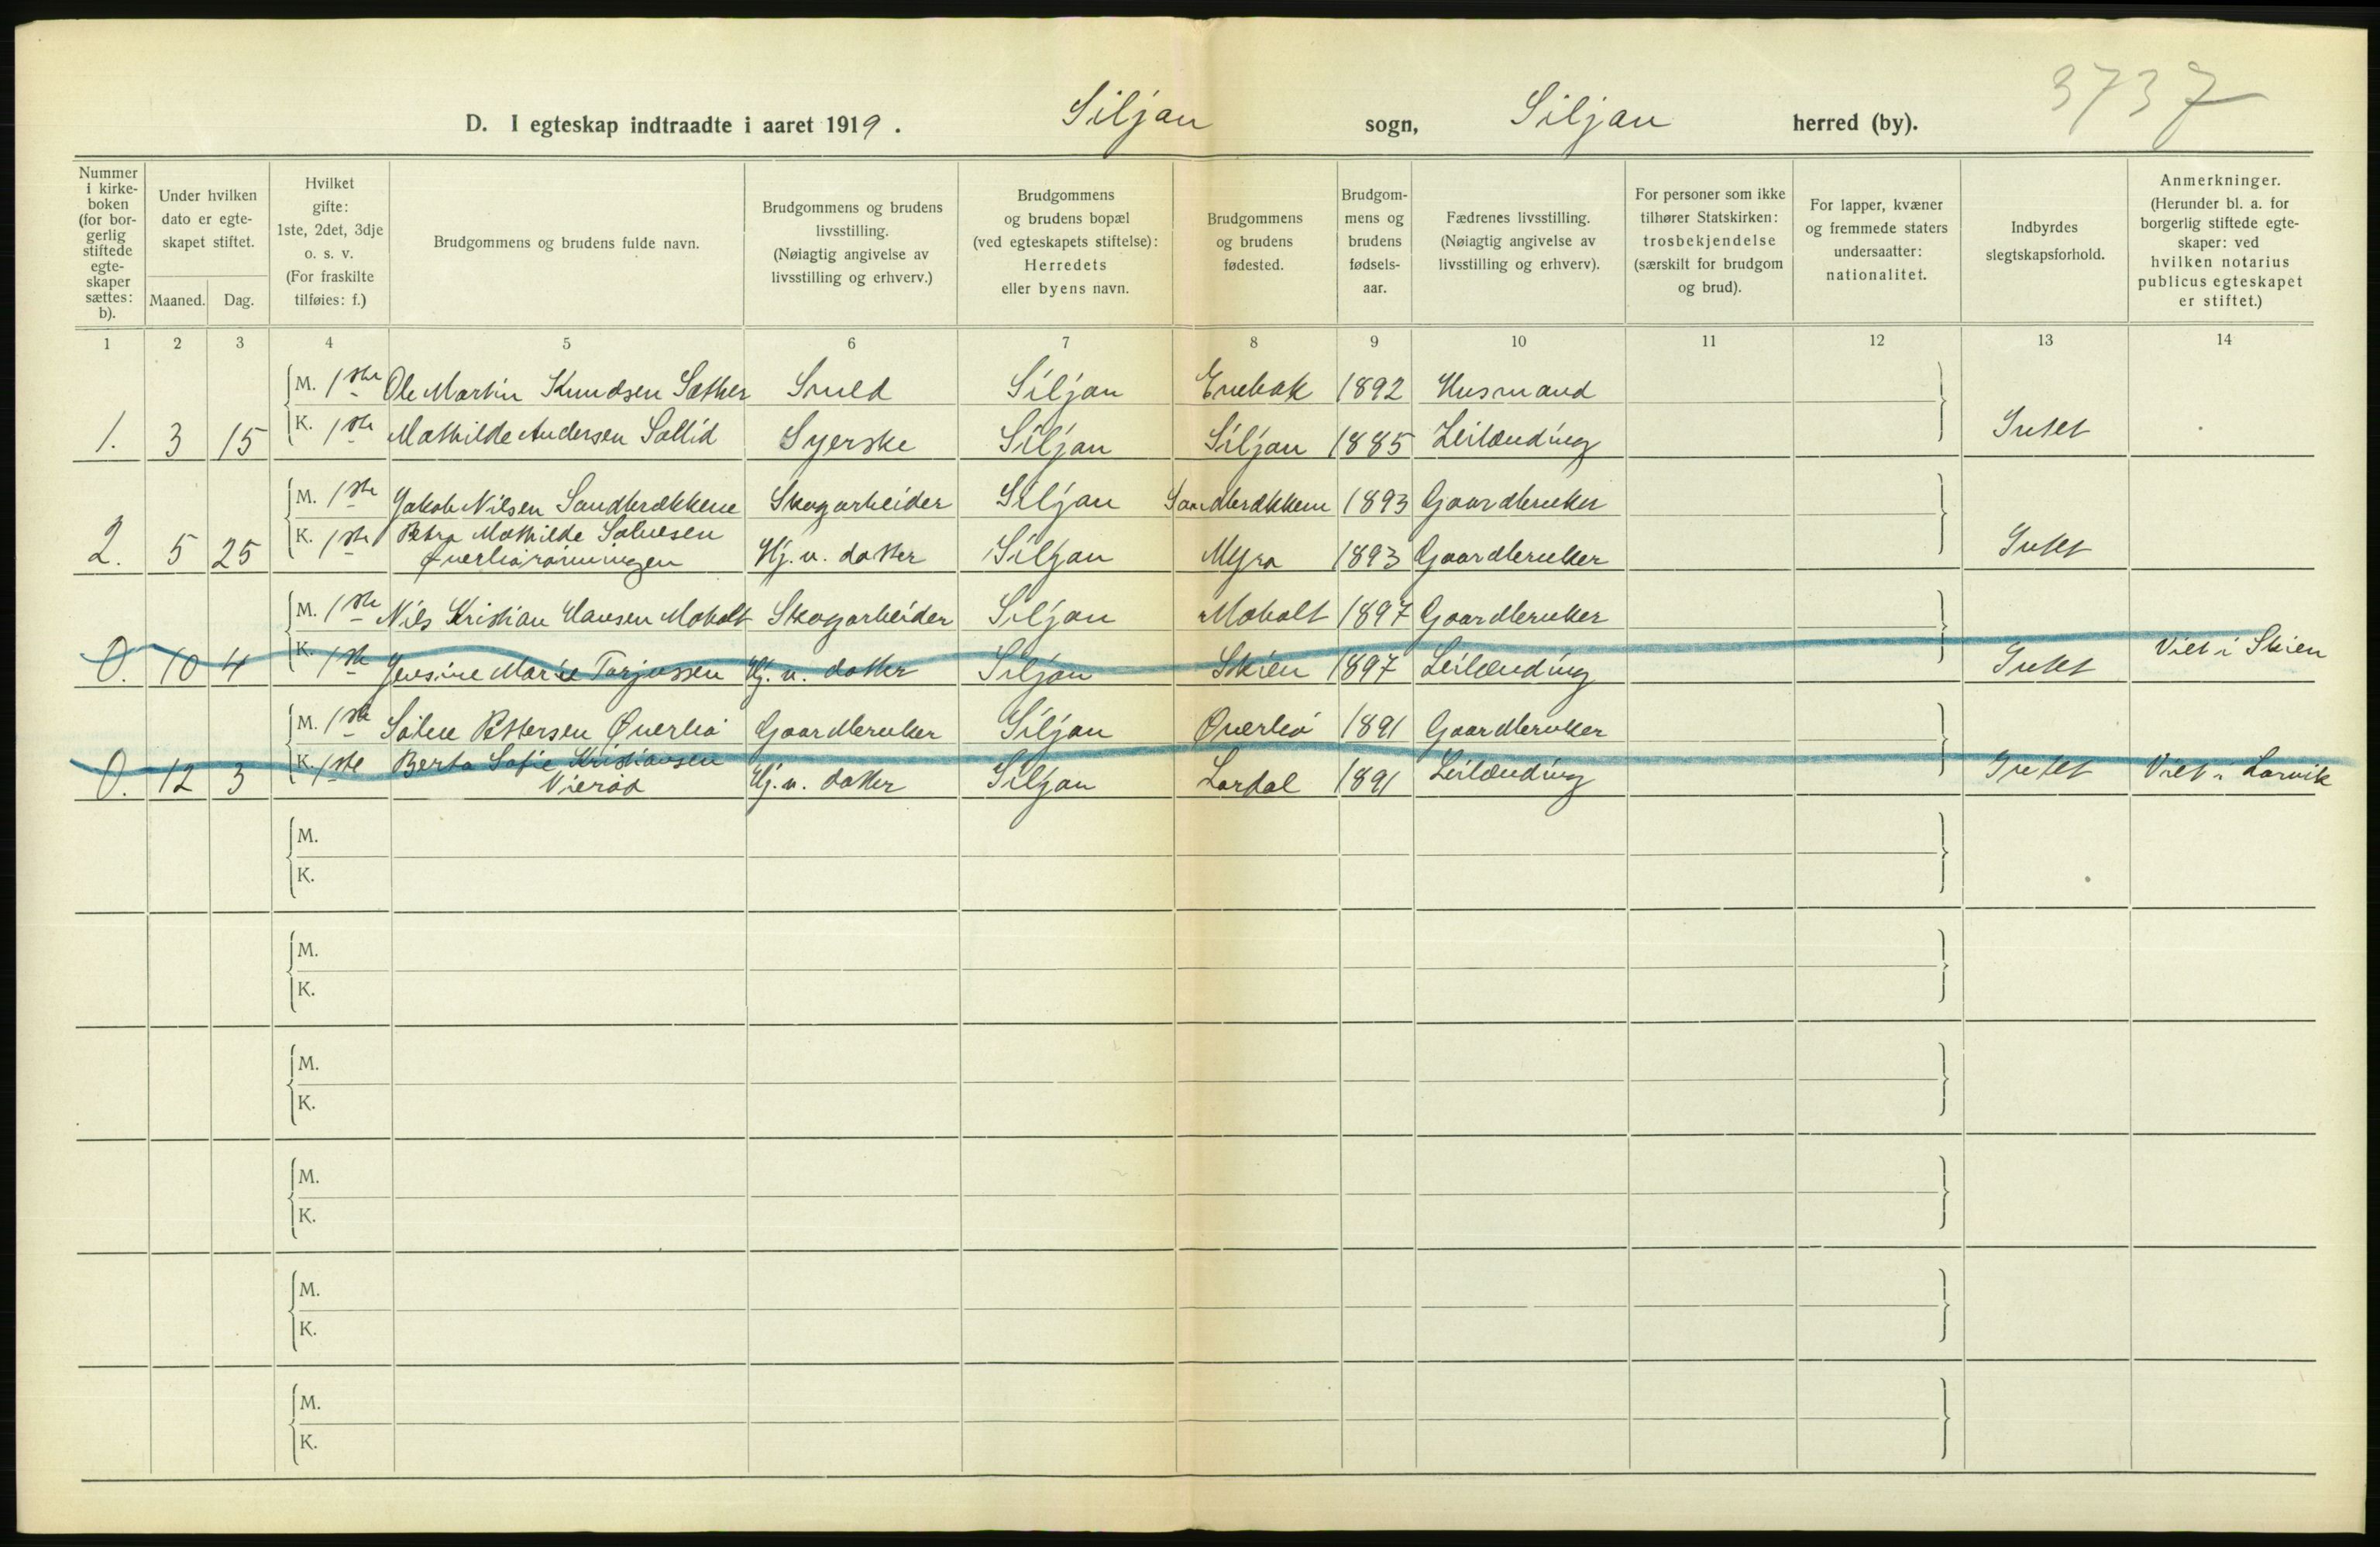 3737
D. I egteskap indtraadte i aaret 1919. Siljan sogn, Siljan herred (by).
Nummer i kirke-boken (for bor-gerlig stiftede egte-skaper sættes: b).
Under hvilken dato er egte-skapet stiftet.
Maaned. Dag.
Hvilket gifte: 1ste, 2det, 3dje o. s. v. (For fraskilte tilføies: f.)
Brudgommens og brudens fulde navn.
Brudgommens og brudens livsstilling. (Nøiagtig angivelse av livsstilling og erhverv.)
Brudgommens og brudens bopæl (ved egteskapets stiftelse): Herredets eller byens navn.
Brudgommens og brudens fødested.
Brudgom-mens og brudens fødsels-aar.
Fædrenes livsstilling. (Nøiagtig angivelse av livsstilling og erhverv).
For personer som ikke tilhører Statskirken: trosbekjendelse (særskilt for brudgom og brud).
For lapper, kvæner og fremmede staters undersaatter: nationalitet.
Indbyrdes slegtskapsforhold.
Anmerkninger. (Herunder bl. a. for borgerlig stiftede egte-skaper: ved hvilken notarius publicus egteskapet er stiftet.)
1 2 3 4 5 6 7 8 9 10 11 12 13 14
M. 1ste Ole Martin Knudsen Sæther Smed Siljan Enebak 1892 Husmand
1. 3 15 K. 1ste Mathilde Andersen Sollid Syerske Siljan Siljan 1885 Leilænding Intet
M. 1ste Jakob Nilsen Sandbrækkene Skogarbeider Siljan Sandbrækkene 1893 Gaardbruker
K. 1ste Petra Mathilde Sølvesen
2. 5 25 Øverbørønningen Hj. v. datter Siljan Myra 1893 Gaardbruker Intet
M. 1ste Nils Kristian Hansen Moholt Skogarbeider Siljan Moholt 1897 Gaardbruker
0. 10 4 K. 1ste Jensine Marie Tarjussen Hj. v. datter Siljan Skien 1897 Leilænding Intet Viet i Skien
M. 1ste Pettersen Øverbø Gaardbruker Siljan Øverbø 1891 Gaardbruker
K. 1ste Berta Sofie Kristiansen
0. 12 3 Vierød Hj. v. datter Siljan Lardal 1891 Leilænding Intet Viet i Larvik
M.
K.
M.
K.
M.
K.
M.
K.
M.
K.
M.
K.